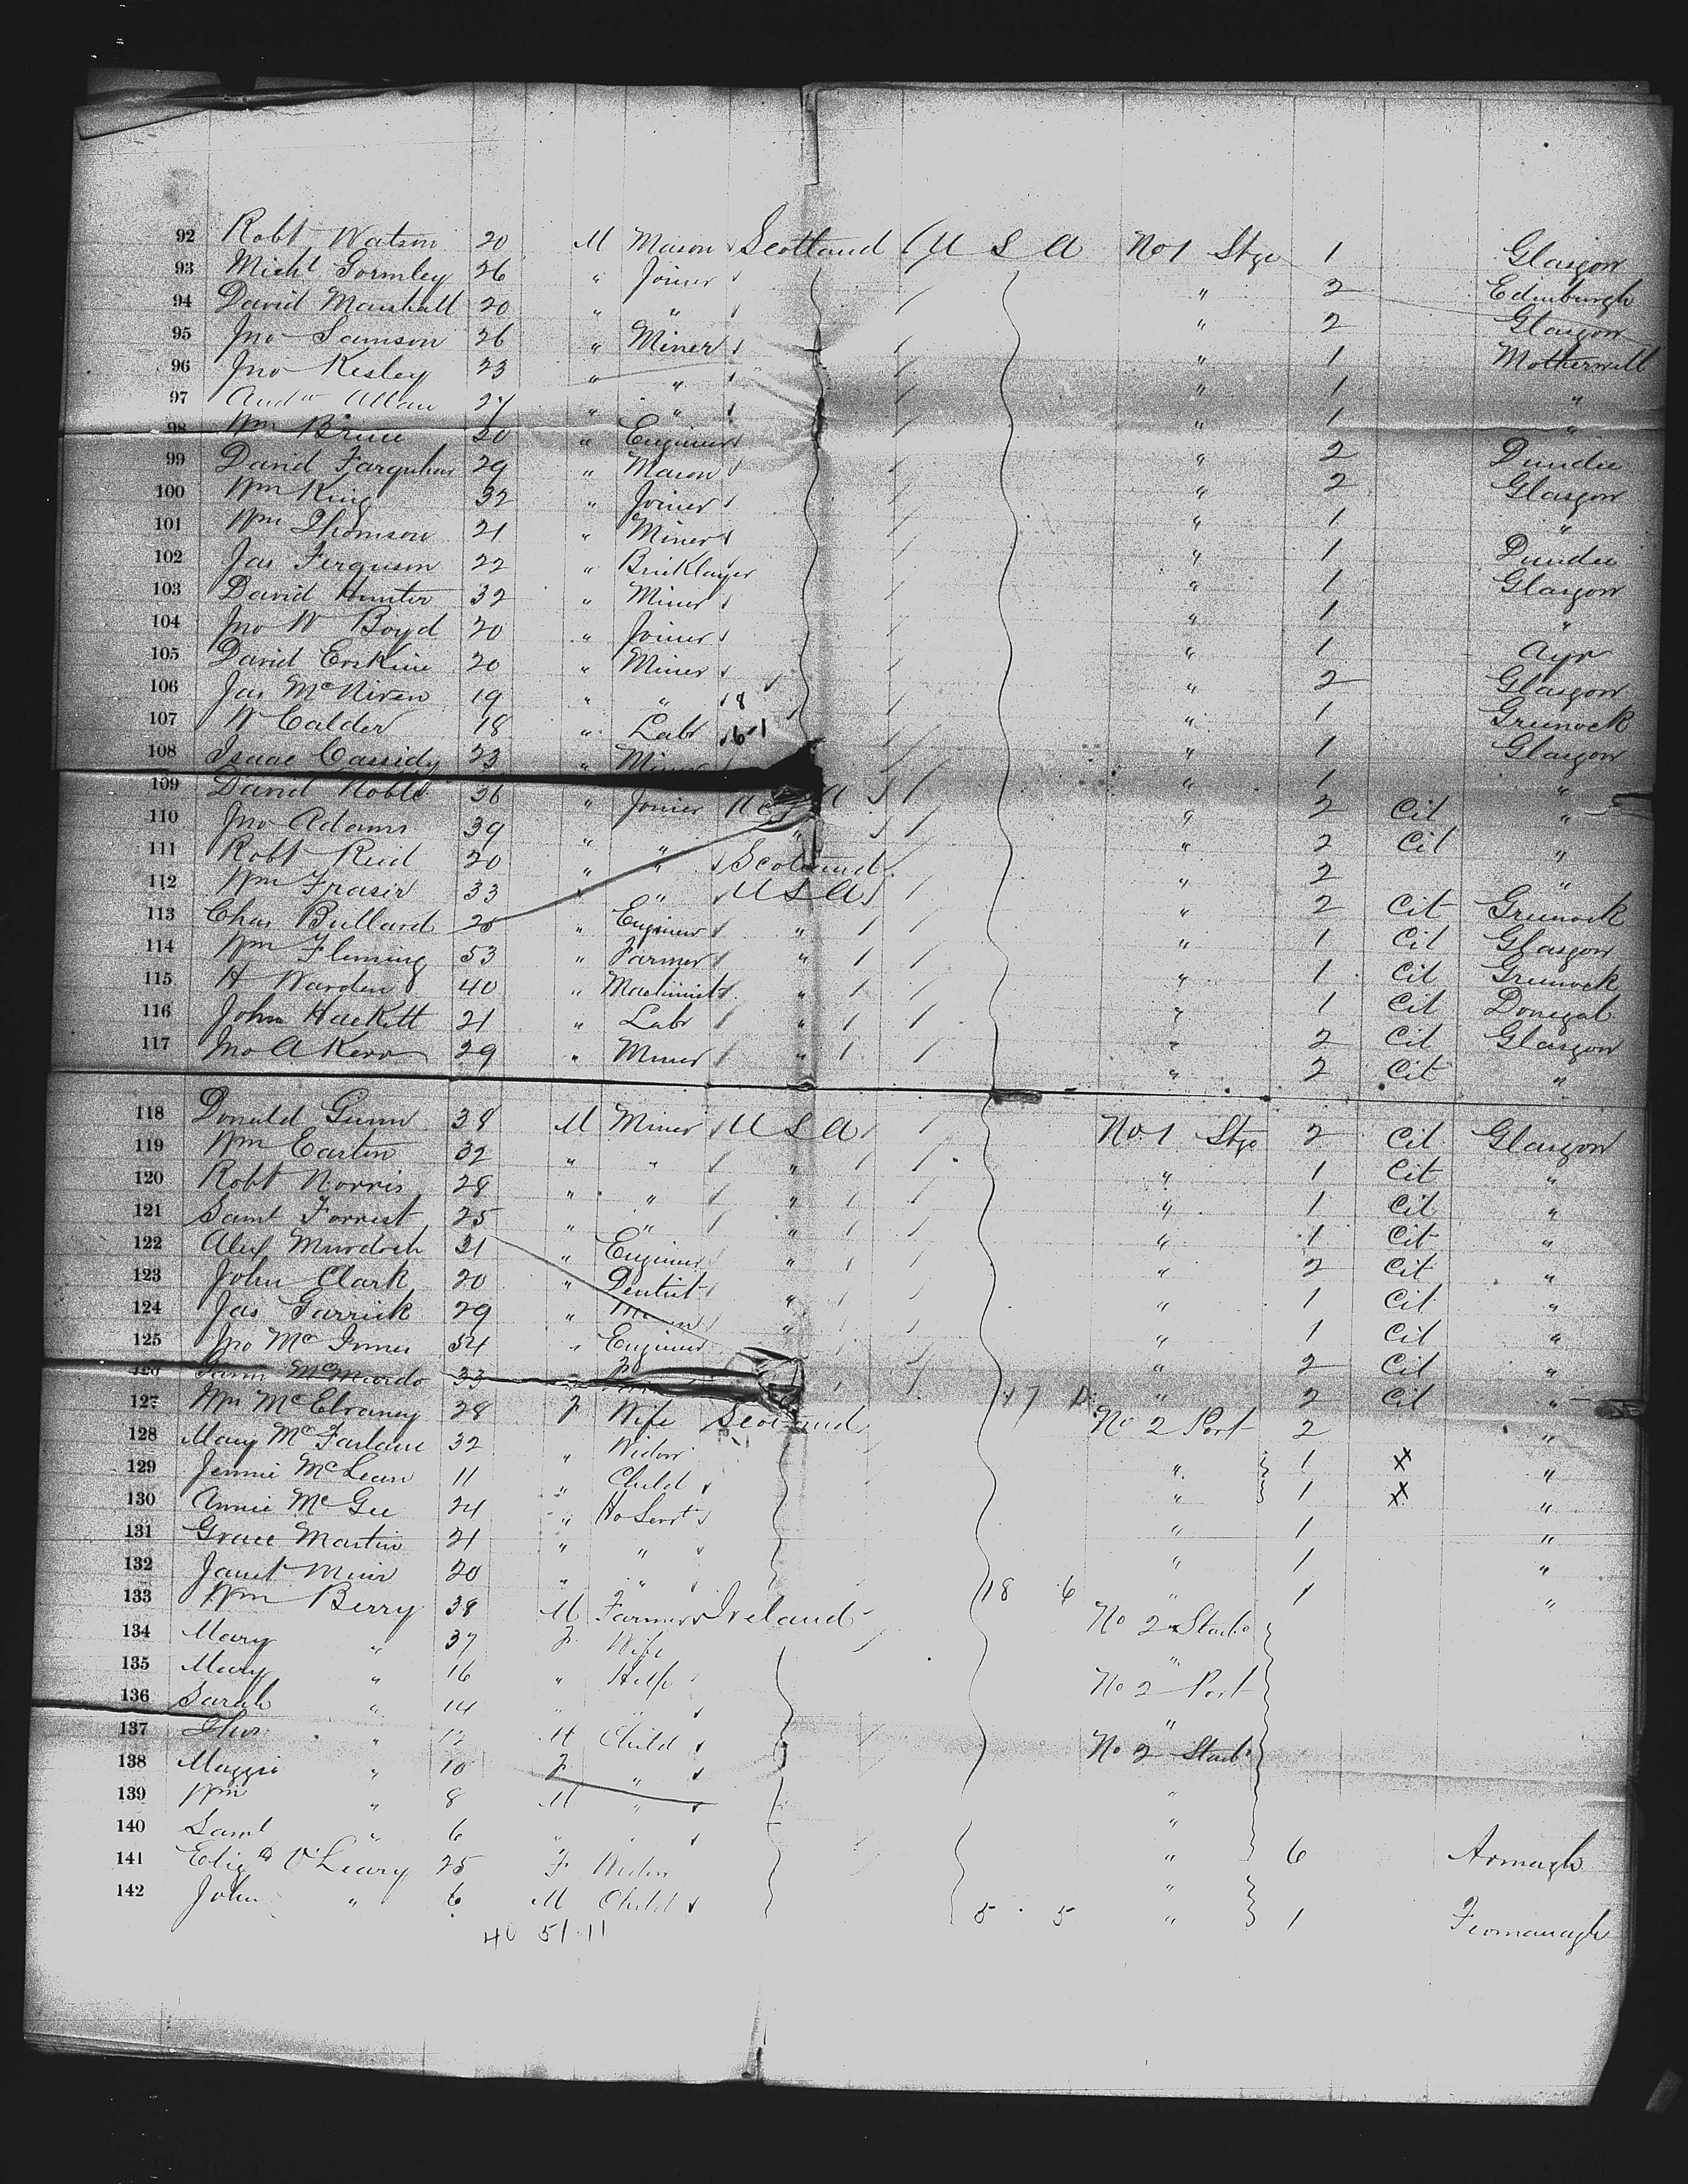 92 Robt Watson 20 M Mason Scotland U S A No 1 Stge 1 Glasgow
93 Michl Gormley 26 " Joiner " 2 Edinburgh
94 David Marshall 20 " " " 2 Glasgow
95 Jno Samson 26 " Miner " 1 Motherwell
96 Jno Kesley 23 " " " 1 "
97 Andw Allan 27 " " " 1 "
98 Wm Bruce 20 " Engineer " 2 Dundee
99 David Farquhar 29 " Mason " 2 Glasgow
100 Wm King 32 " Joiner " 1 "
101 Wm Thomson 21 " Miner " 1 Dundee
102 Jas Ferguson 22 " Bricklayer " 1 Glasgow
103 David Hunter 32 " Miner " 1 "
104 Jno W Boyd 20 " Joiner " 1 Ayr
105 David Erskine 20 " Miner " 2 Glasgow
106 Jas McNiven 19 " " 8 " 1 Greenock
107 W Calder 18 " Labr 6-1 " 1 Glasgow
108 Isaac Cassidy 23 " Miner " 1 "
109 David Noble 36 " Joiner " 2 Cit "
110 Jno Adams 39 " " " " 2 Cit "
111 Robt Reid 20 " " Scotland " 2 "
112 Wm Fraser 33 " " U S A " 2 Cit Greenock
113 Chas Bullard 25 " Engineer " " 1 Cit Glasgow
114 Wm Fleming 53 " Farmer " " 1 Cit Greenock
115 H Warden 40 " Machinist " " 1 Cit Donegal
116 John Hackett 21 " Labr " " 2 Cit Glasgow
117 Jno A Kerr 29 " Miner " " 2 Cit "
118 Donald Gunn 38 M Miner U S A No 1 Stge 2 Cit Glasgow
119 Wm Easton 32 " " " " 1 Cit "
120 Robt Norris 28 " " " " 1 Cit "
121 Saml Forrest 25 " " " " 1 Cit "
122 Alex Murdoch 21 " Engineer " " 2 Cit "
123 John Clark 20 " Dentist " " 1 Cit "
124 Jas Garrick 29 " " " 1 Cit "
125 Jno McInnes 54 " Engineer " 2 Cit "
126 McMurdo 33 17 " 2 Cit "
127 Wm McElraney 28 F Wife Scotland No 2 Port 2 "
128 Mary McFarlane 32 " Widow " 1 X "
129 Jennie McLean 11 " Child " 1 X "
130 Annie McGee 24 " Ho Servt " 1 "
131 Grace Martin 21 " " " 1 "
132 Janet Muir 20 " " 18 6 " 1 "
133 Wm Berry 38 M Farmer Ireland No 2 Starb
134 Mary " 37 F Wife "
135 Mary " 16 " Help No 2 Port
136 Sarah " 14 " " "
137 Thos " 12 M Child No 2 Starb
138 Maggie " 10 F " "
139 Wm " 8 M " "
140 Saml " 6 " " " 6 Armagh
141 Eliz O'Leary 25 F Widow "
142 John " 6 M Child 5 5 " 1 Fermanagh
40 51.11